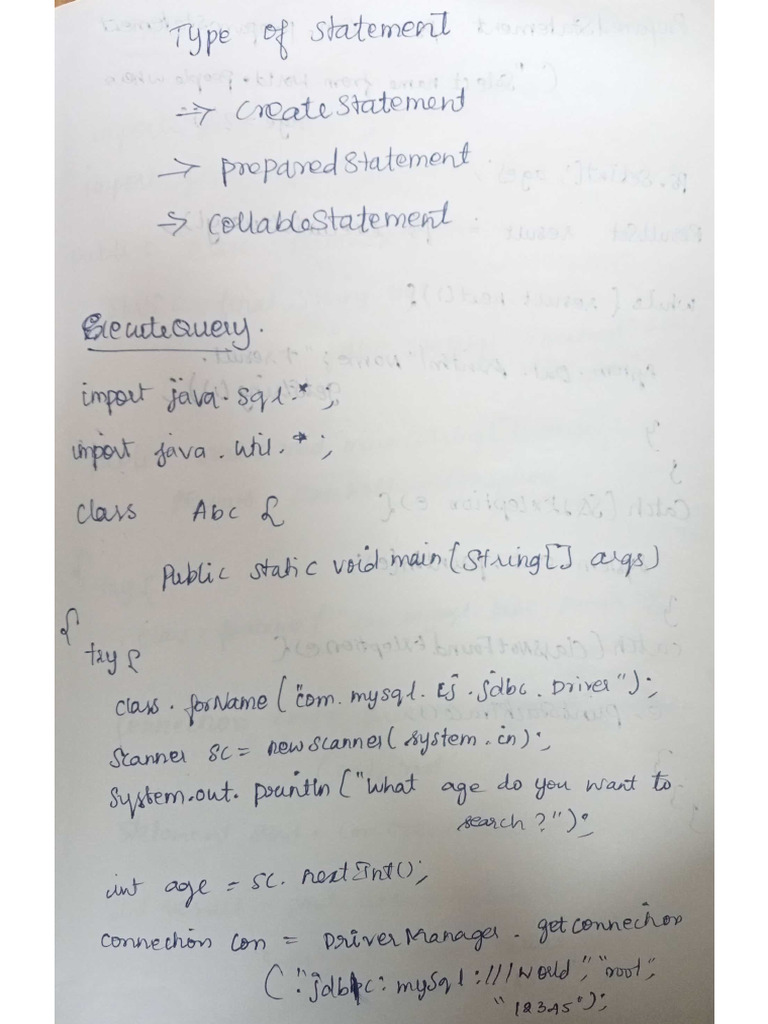 Type of statement
→ createstatement
→ preparedstatement
→ collablestatement
ExecuteQuery.
import java.sql.*;
import java.util.*;
class Abc {
Public static void main(String[] args)
{
try {
class.forName("com.mysql.cj.jdbc.Driver");
Scanner sc = new scanner(system.in);
System.out.println("What age do you want to
search?");
int age = sc.nextInt();
connection con = DriverManager.getconnection
("jdbc:mysql:///world","root",
"12345");